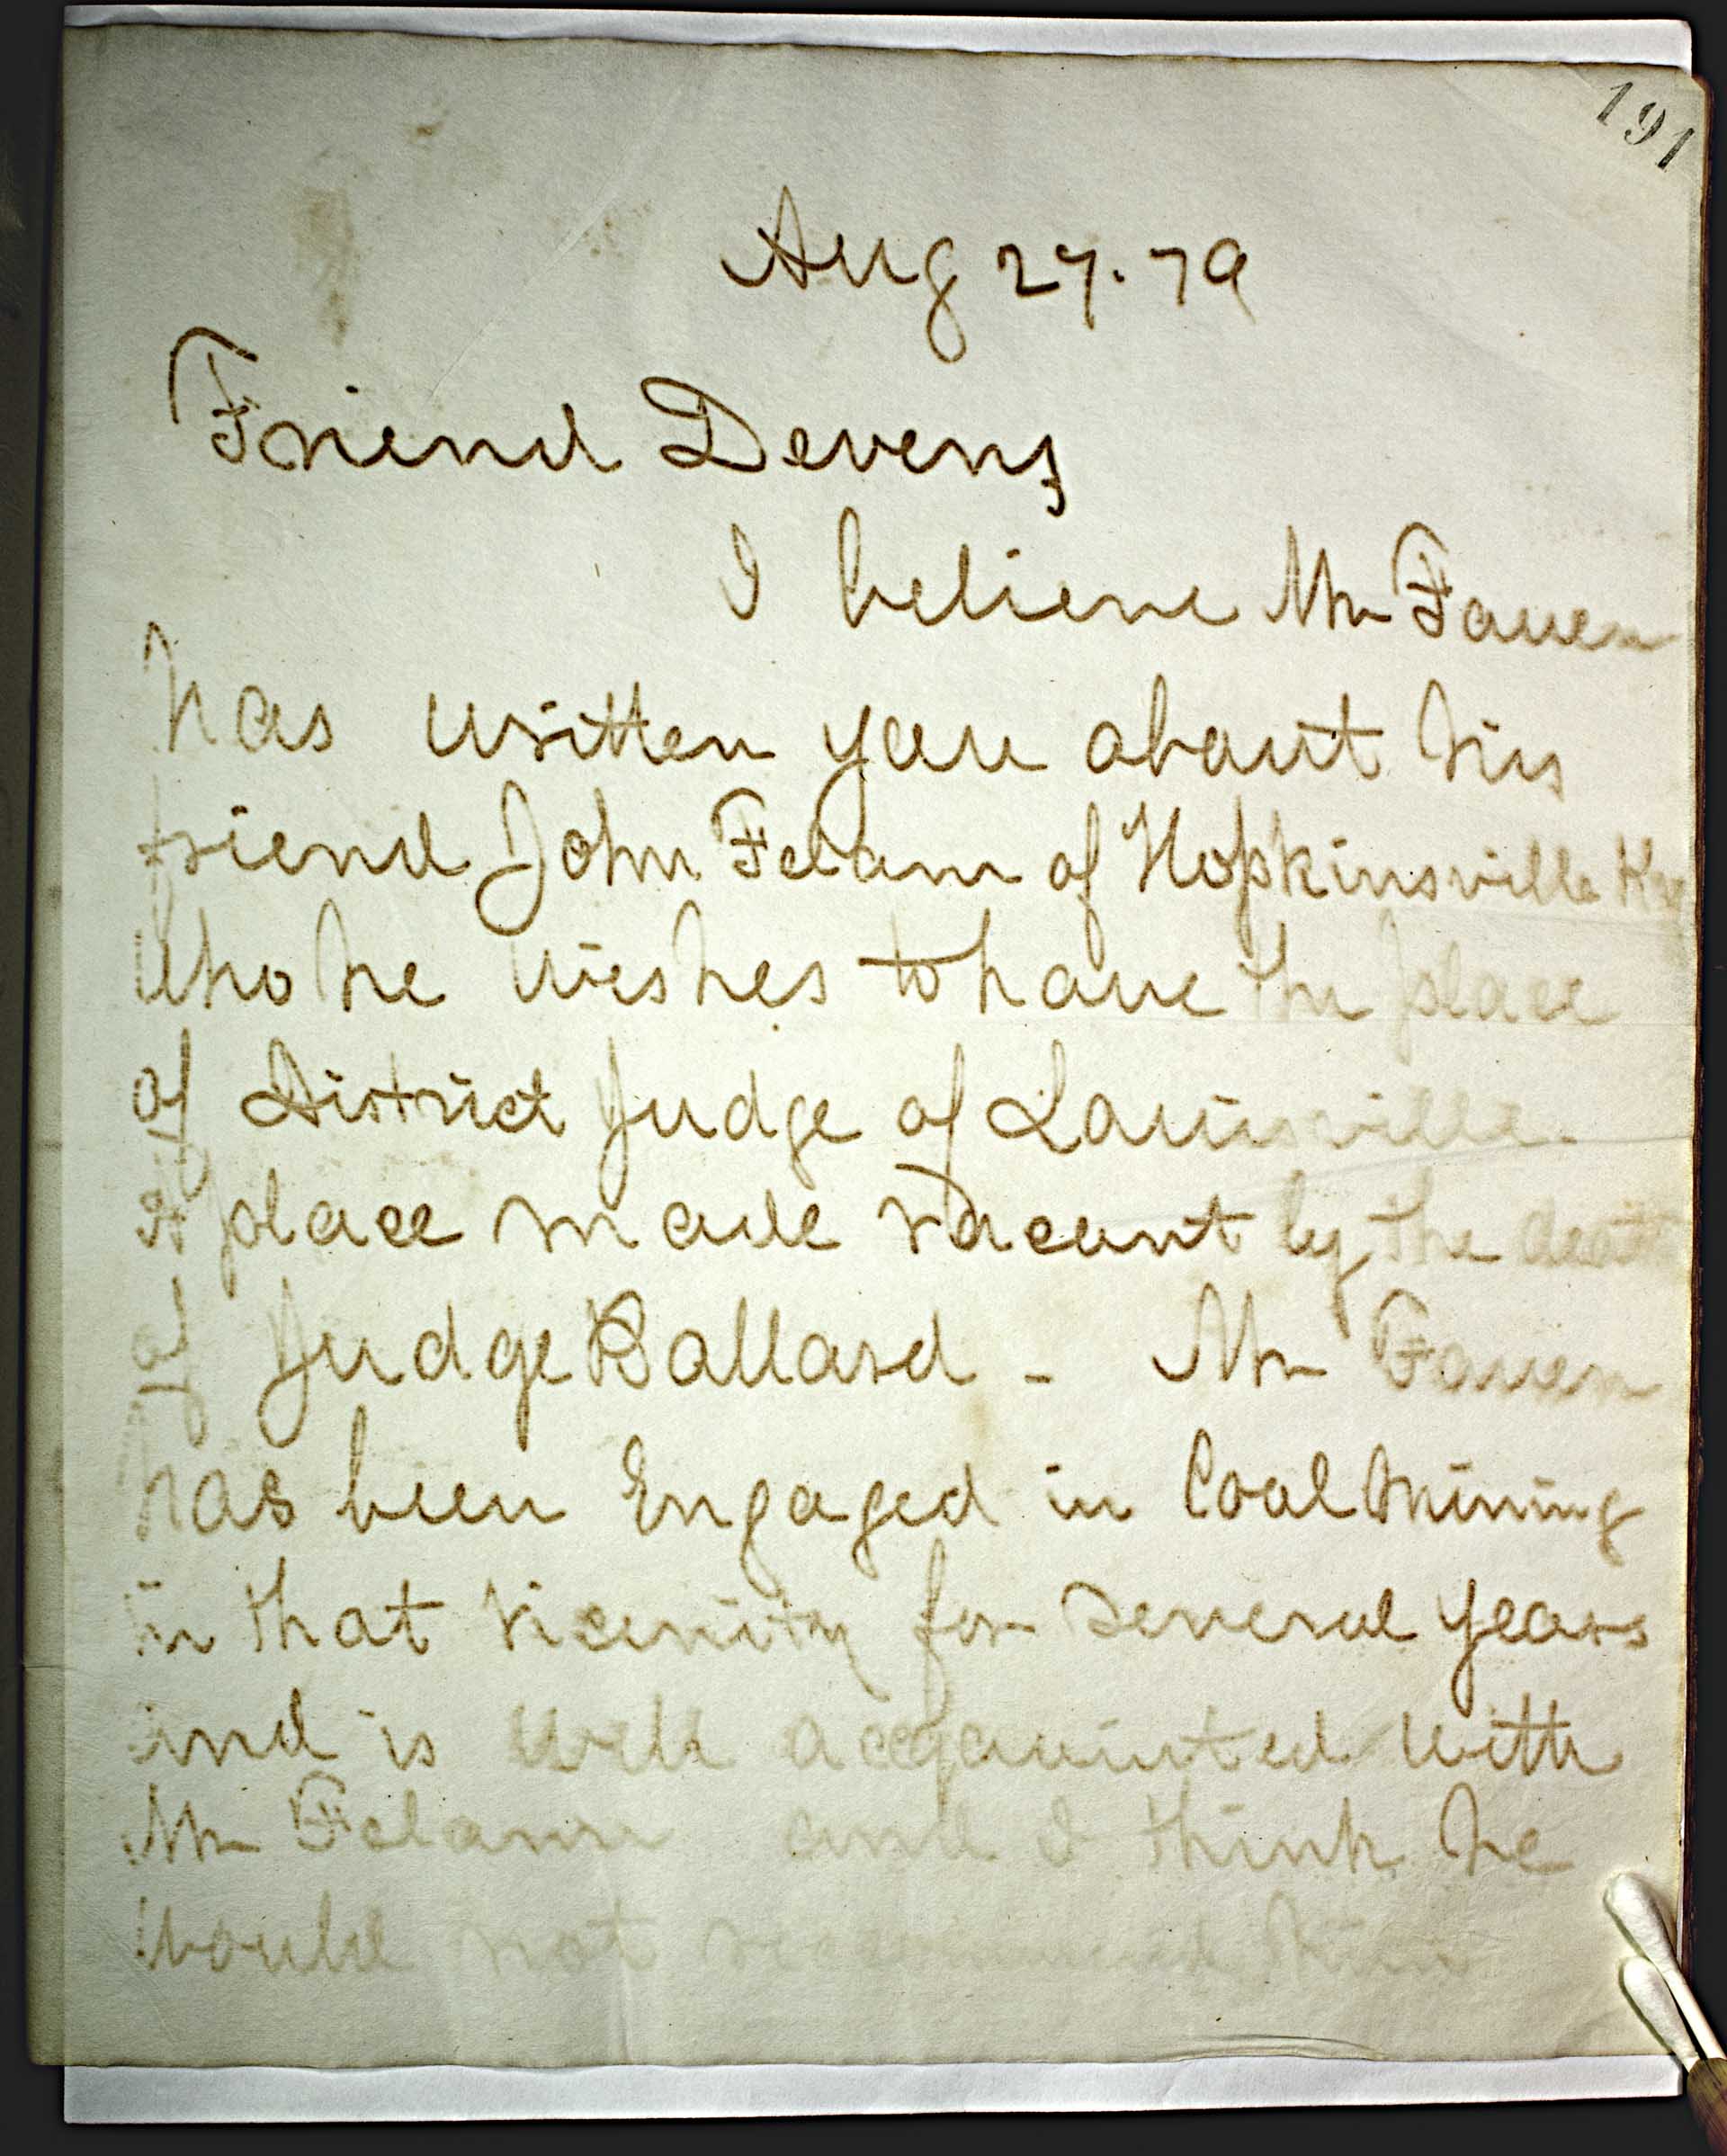 191
Aug 27. 79
Friend Devens
I believe Mr Faven
has written you about his
friend John Feland of Hopkinsville Ky
who he wishes to have the place
of District Judge of Louisville.
A place made vacant by the death
of Judge Ballard - Mr Faven
has been Engaged in Coal Mining
in that vicenity for several years
and is well acquainted with
Mr Feland and I think he
would not recommend him